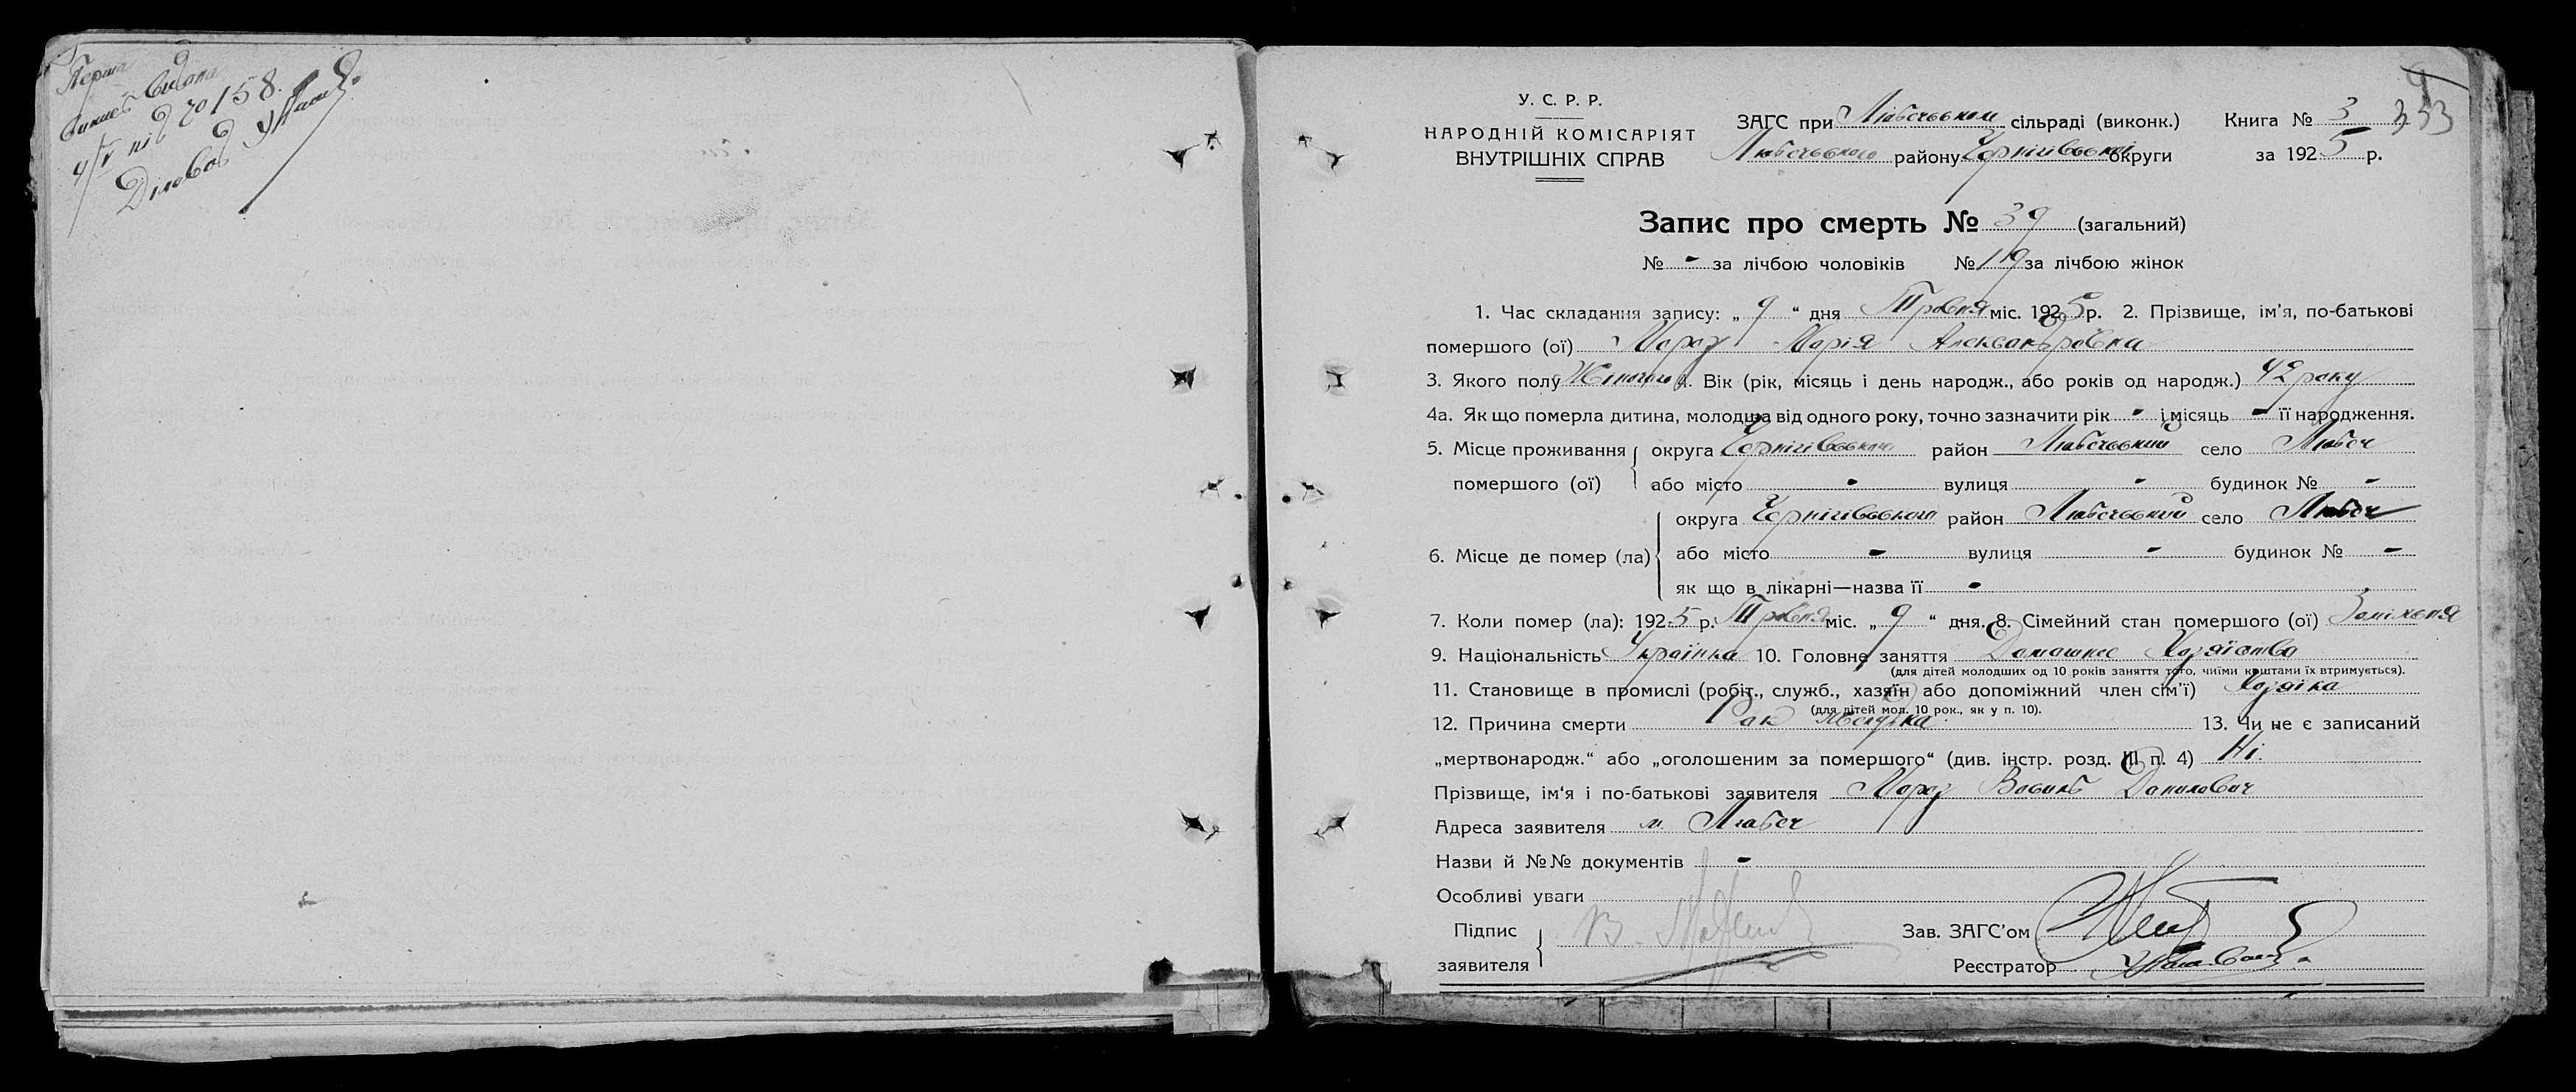 Перша
виписъ видана
9/V під № 158.
Діловод
У. С. Р. Р.
НАРОДНІЙ КОМІСАРІЯТ
ВНУТРІШНІХ СПРАВ
ЗАГС при Любечськом сільраді (виконк.)
Любечського району Чернігівської округи
Книга № 3
за 1925 р.
333
Запис про смерть № 39 (загальний)
№ - за лічбою чоловіків № 19 за лічбою жінок
1. Час складання запису: „ 9 “ дня Травня міс. 1925 р. 2. Прізвище, ім’я, по-батькові
помершого (ої) Мороз Марія Александровна
3. Якого полу Жіночого 4. Вік (рік, місяць і день народж., або років од народж.) 42 року
4а. Як що померла дитина, молодша від одного року, точно зазначити рік - і місяць - її народження.
5. Місце проживання помершого (ої) округа Чернігівського район Любечський село Любеч
або місто - вулиця - будинок № -
6. Місце де помер (ла) округа Чернігівського район Любечський село Любеч
або місто - вулиця - будинок № -
як що в лікарні—назва її -
7. Коли помер (ла): 1925 р. Травня міс. „ 9 “ дня. 8. Сімейний стан помершого (ої) Заміжня
9. Національність Українка 10. Головне заняття Домашнее Хозяїство
(для дітей молодших од 10 років заняття того, чиїми коштами їх втримується).
11. Становище в промислі (робіт., служб., хазяїн або допоміжний член сім’ї) Хозяіка
(для дітей мол. 10 рок., як у п. 10).
12. Причина смерти Рак желудка. 13. Чи не є записаний
„мертвонародж.“ або „оголошеним за помершого“ (див. інстр. розд. III п. 4) Ні.
Прізвище, ім‘я і по-батькові заявителя Мороз Василь Данилович
Адреса заявителя м. Любеч
Назви й №№ документів -
Особливі уваги
Підпис заявителя
Зав. ЗАГС’ом
Реєстратор